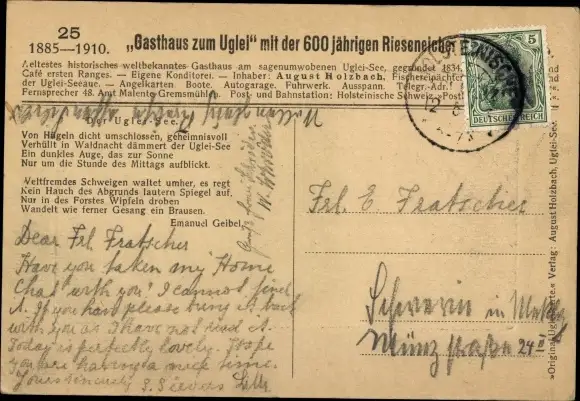 25
1885—1910. „Gasthaus zum Uglei“ mit der 600 jährigen Rieseneiche
Aeltestes historisches weltbekanntes Gasthaus am sagenumwobenen Uglei-See, gegründet 1834.
Café ersten Ranges. — Eigene Konditorei. — Inhaber: August Holzbach,
der Ugleiseeäue. — Angelkarten Boote. Autogarage. Fuhrwerk. Ausspann. Telegr.-Adr.:
Fernsprecher 48, Amt Malente-Gremsmühlen. Post und Bahnstation: Holsteinische Schweiz.
5
DEUTSCHES REICH
Der Uglei-See.
Von Hügeln dicht umschlossen, geheimnisvoll
Verhüllt in Waldnacht dämmert der Uglei-See
Ein dunkles Auge, das zur Sonne
Nur um die Stunde des Mittags aufblickt.
Weltfremdes Schweigen waltet umher, es regt
Kein Hauch des Abgrunds lautern Spiegel auf,
Nur in des Forstes Wipfeln drohen
Wandelt wie ferner Gesang ein Brausen.
Emanuel Geibel.
Dear Frl. Fratscher
Have you taken my Home
Chat with you? I cannot find
it. If you have please bring it back
with you as I have not read it.
Today is perfectly lovely. I hope
you are having a nice time.
Yours sincerely S. Sievers
Frl. E Fratscher
Schwerin in Meckl
Münzstraße 24 II
»Original Uglei-Karte.« Verlag: August Holzbach, Uglei-See